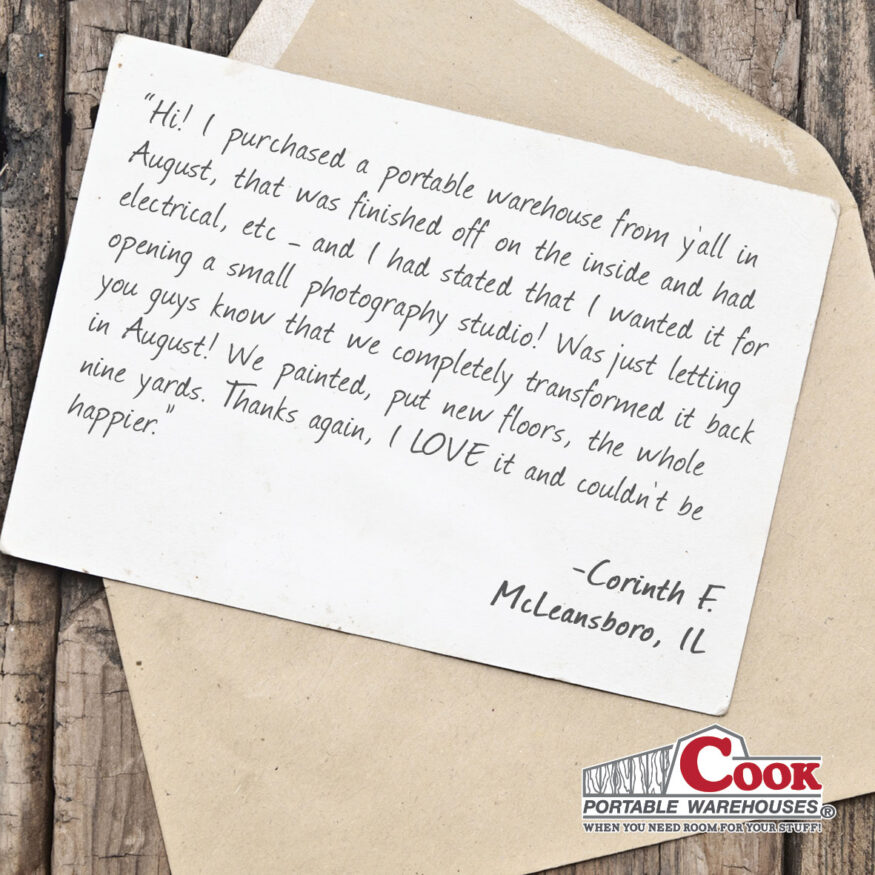 "Hi! I purchased a portable warehouse from y'all in
August, that was finished off on the inside and had
electrical, etc – and I had stated that I wanted it for
opening a small photography studio! Was just letting
you guys know that we completely transformed it back
in August! We painted, put new floors, the whole
nine yards. Thanks again, I LOVE it and couldn't be
happier."
-Corinth F.
McLeansboro, IL
COOK
PORTABLE WAREHOUSES®
WHEN YOU NEED ROOM FOR YOUR STUFF!